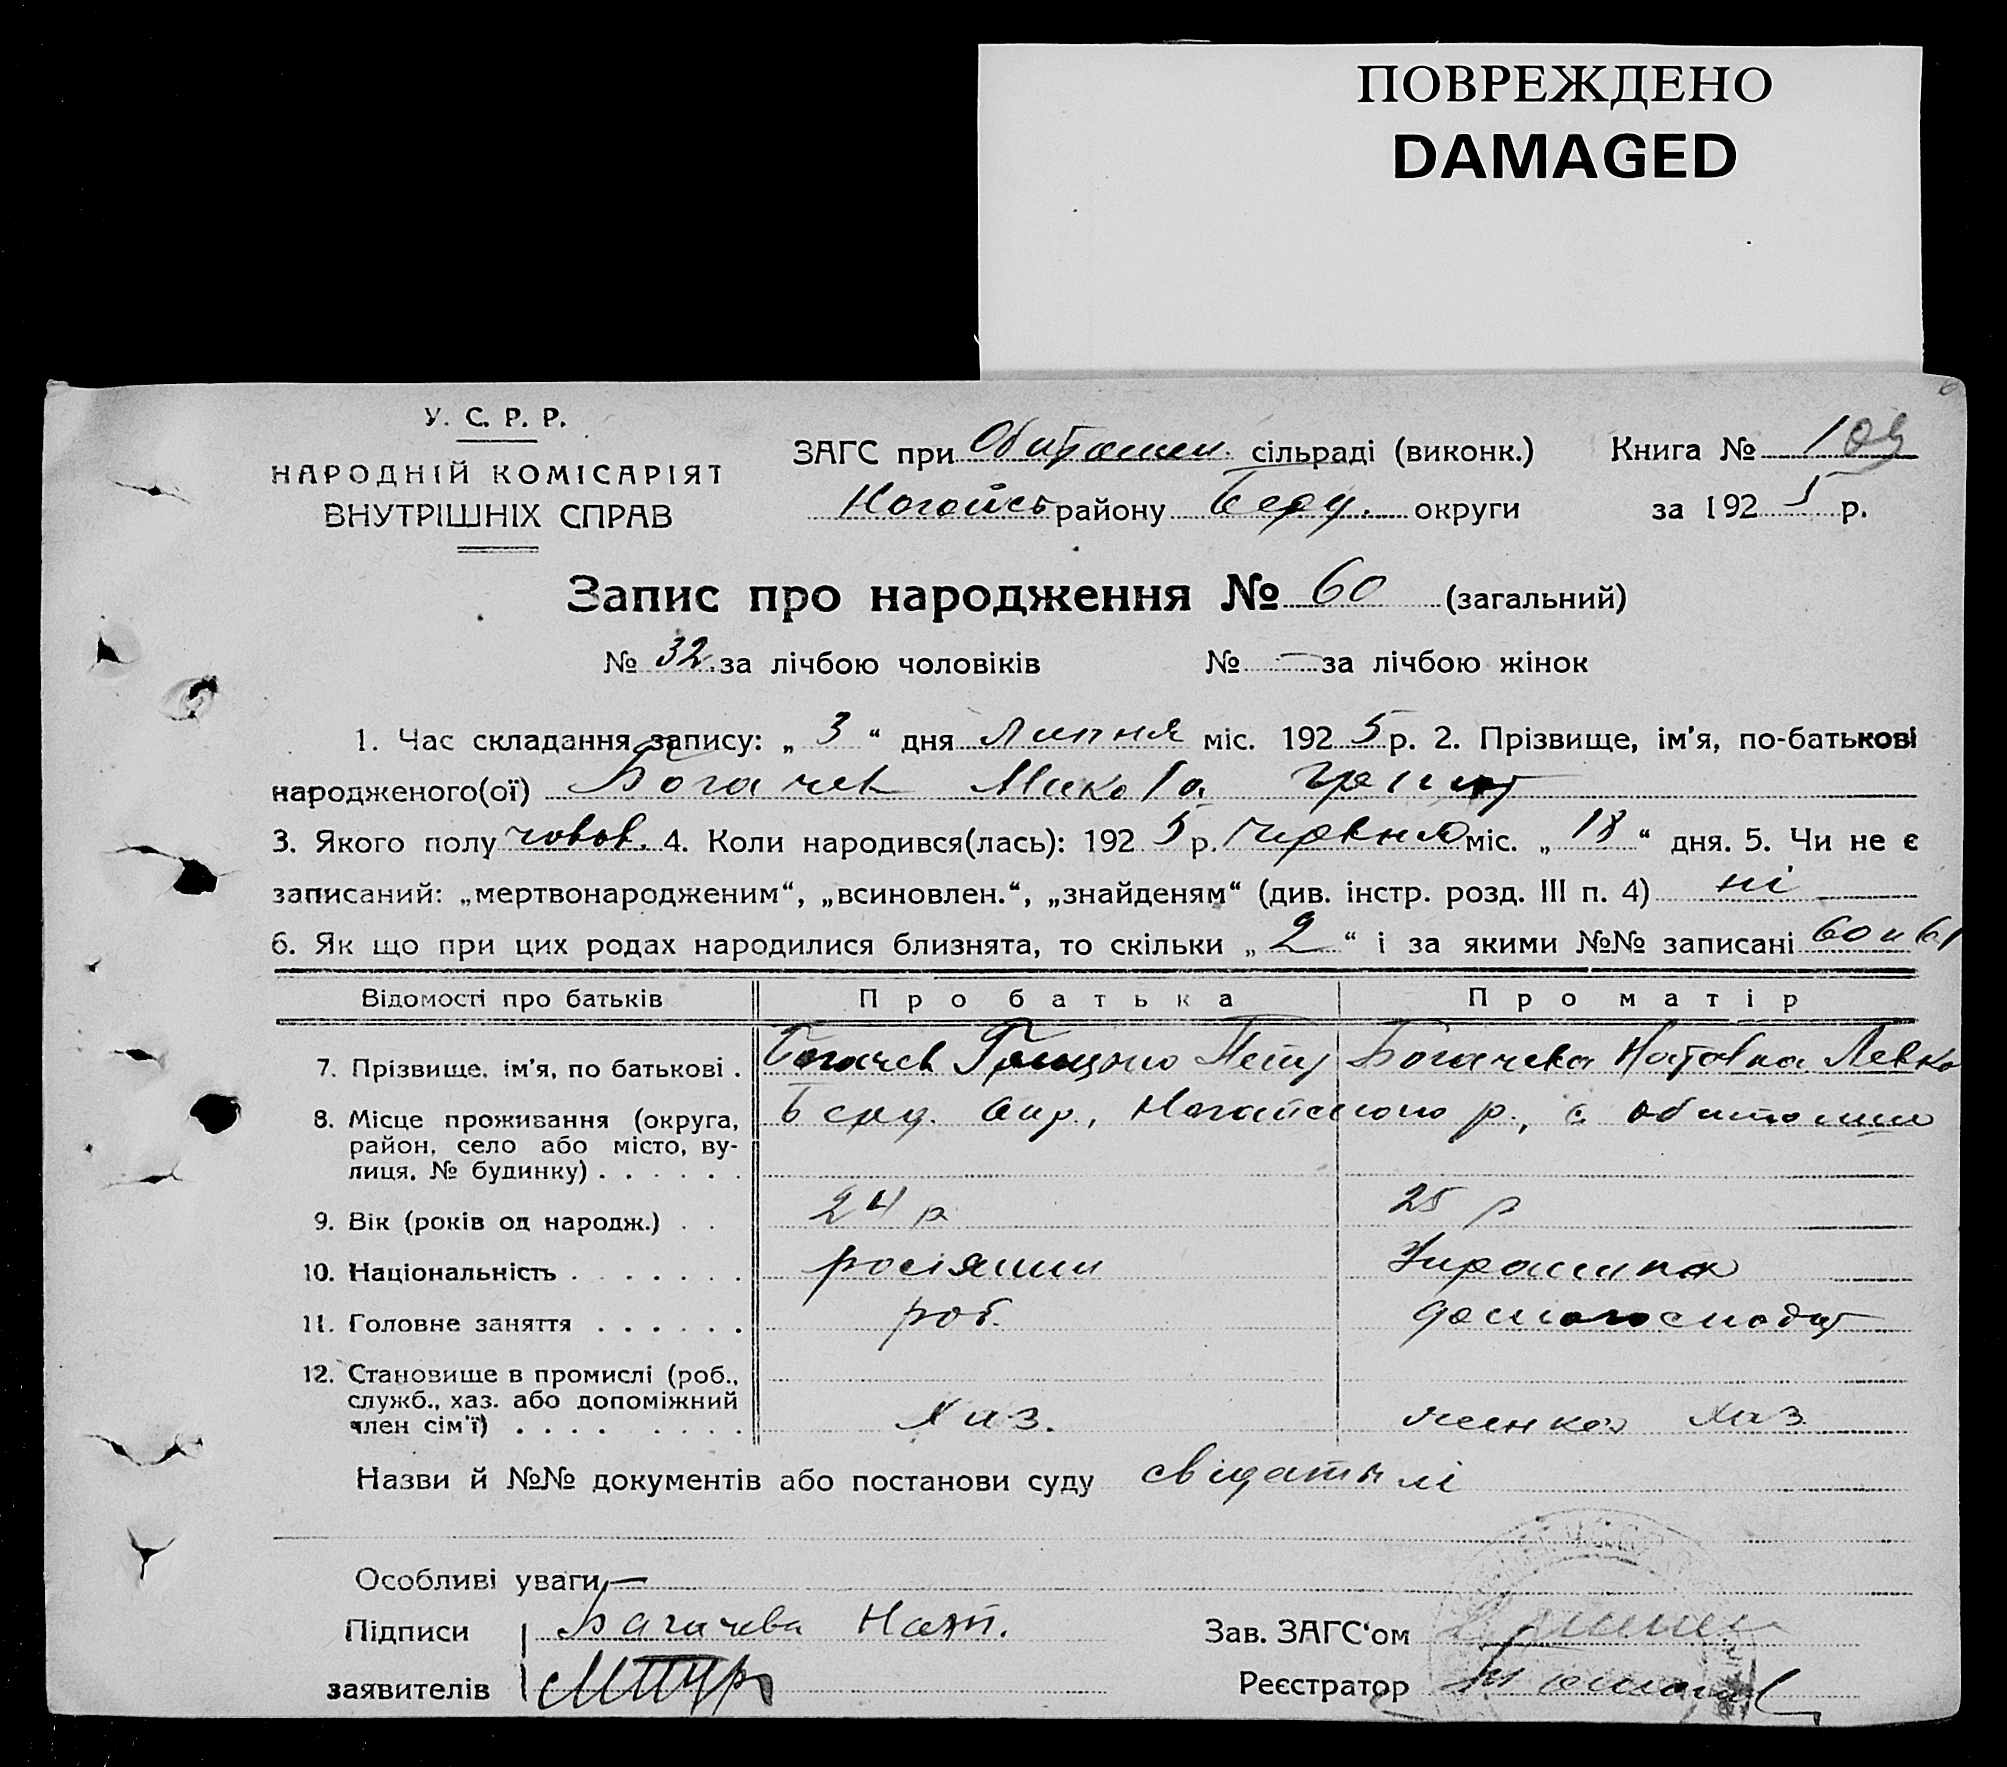 ПОВРЕЖДЕНО
DAMAGED
У. С. Р. Р.
НАРОДНІЙ КОМІСАРІЯТ
ВНУТРІШНІХ СПРАВ
ЗАГС при сільраді (виконк.) Книга №
Ногайсь району Берд. округи за 1925 р.
Запис про народження № 60 (загальний)
№ 32. за лічбою чоловіків № — за лічбою жінок
1. Час складання запису: „ 3 “ дня Липня міс. 1925 р. 2. Прізвище, ім’я, по-батькові
народженого(ої) Богачев Микола
3. Якого полу 4. Коли народився(лась): 1925 р. Червня міс. „ 18 “ дня. 5. Чи не є
записаний: „мертвонародженим“, „всиновлен.“, „знайденям“ (див. інстр. розд. III п. 4) ні
6. Як що при цих родах народилися близнята, то скільки „ 2 “ і за якими №№ записані 60 и 61
Відомості про батьків Про батька Про матір
7. Прізвище, ім’я, по батькові . Богачев Петр Богачева Левко
8. Місце проживання (округа, Берд. окр., Ногайського р., с
район, село або місто, ву-
лиця, № будинку) . . . . . .
9. Вік (років од народж.) . . 24 р 25 р
10. Національність . . . . . . . росіянин Украинка
11. Головне заняття . . . . . . роб. домогосподар
12. Становище в промислі (роб.,
служб., хаз. або допоміжний
член сім’ї) . . . . . . . . Хаз. жинка Хаз
Назви й №№ документів або постанови суду свідатылі
Особливі уваги —
Підписи Багачева Нат. Зав. ЗАГС‘ом
заявителів Реєстратор